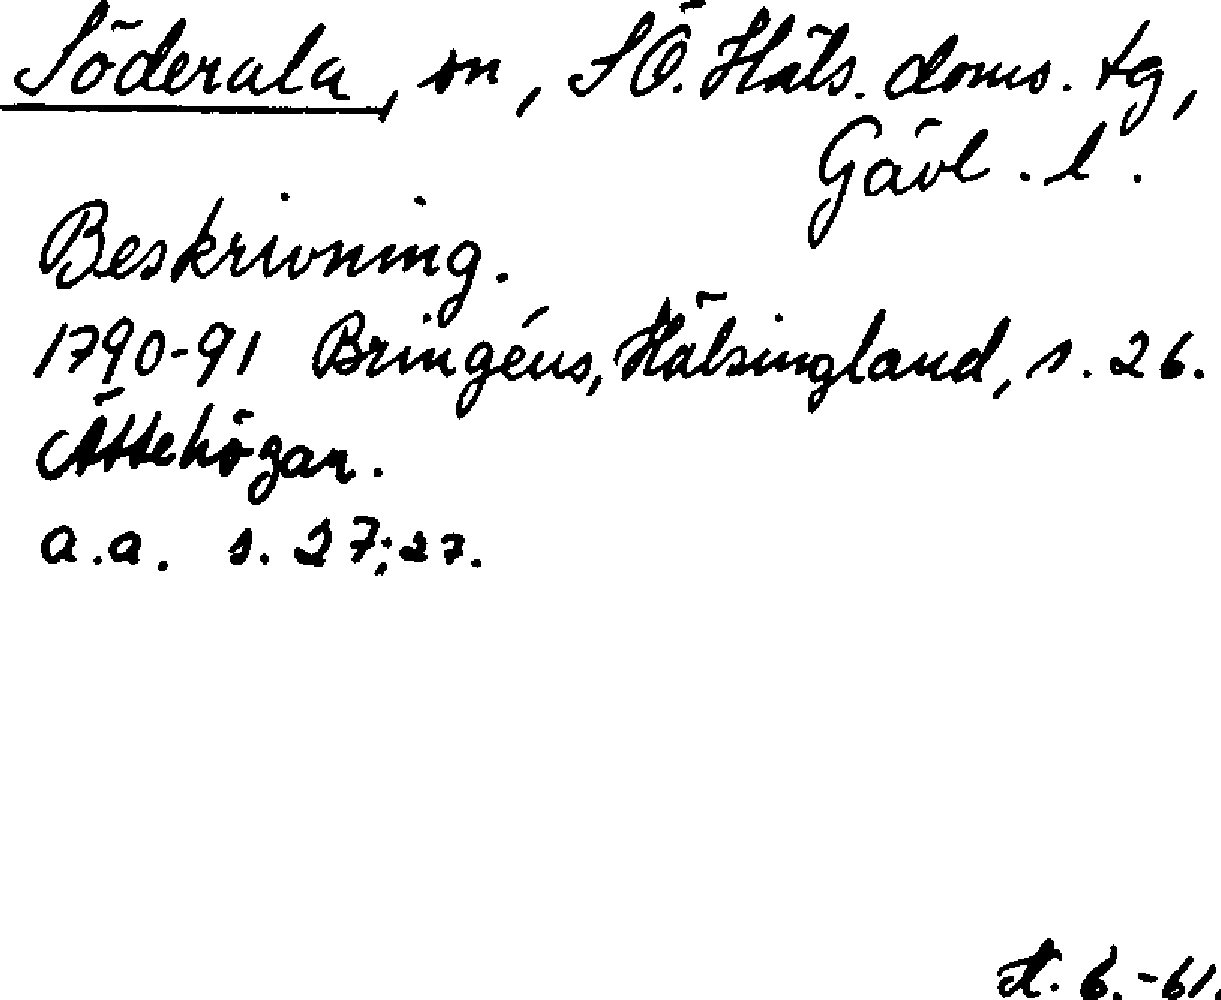 Söderala, sn, SÖ. Häls. doms. tg,
Gävl. l.
Beskrivning.
1790-91 Bringéus, Hälsingland, s. 26.
Ättehögar.
a.a. s. 27; 27.
6.-61.